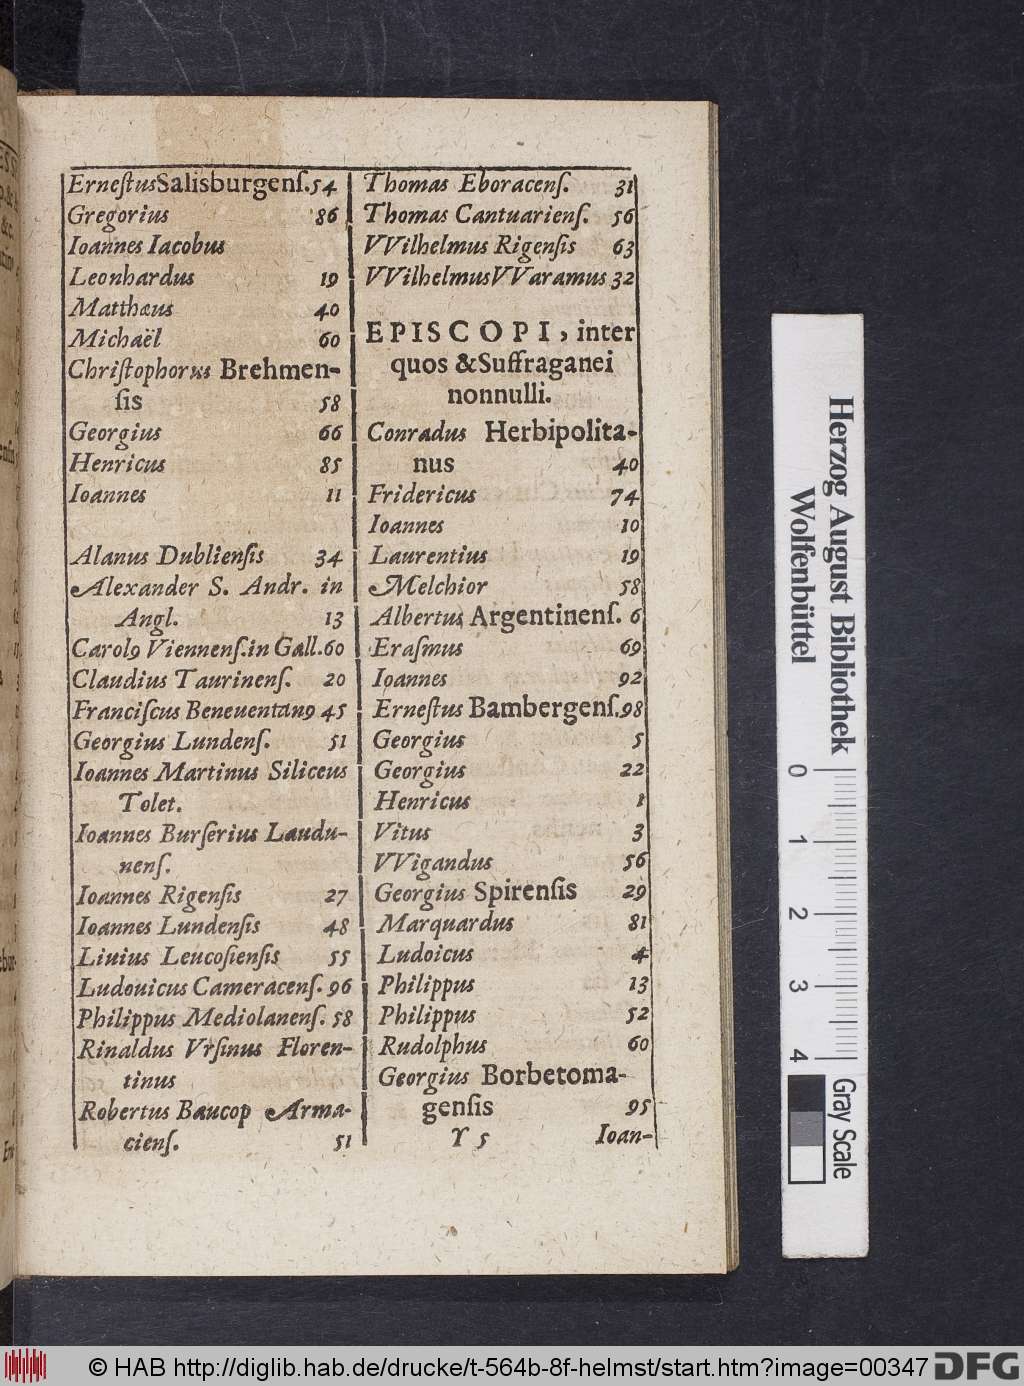 Erneſtus Salisburgenſ. 54
Gregorius 86
Ioannes Iacobus
Leonhardus 19
Matthæus 40
Michaël 60
Chriſtophorus Brehmen-
ſis 58
Georgius 66
Henricus 85
Ioannes 11
Alanus Dublienſis 34
Alexander S. Andr. in
Angl. 13
Carolꝰ Viennenſ. in Gall. 60
Claudius Taurinenſ. 20
Franciſcus Beneuentanꝰ 45
Georgius Lundenſ. 51
Ioannes Martinus Siliceus
Tolet.
Ioannes Burſerius Laudu-
nenſ.
Ioannes Rigenſis 27
Ioannes Lundenſis 48
Liuius Leucoſienſis 55
Ludouicus Cameracenſ. 96
Philippus Mediolanenſ. 58
Rinaldus Vrſinus Floren-
tinus
Robertus Baucop Arma-
cienſ. 51
Thomas Eboracenſ. 31
Thomas Cantuarienſ. 56
VVilhelmus Rigenſis 63
VVilhelmus VVaramus 32
EPISCOPI, inter
quos & Suffraganei
nonnulli.
Conradus Herbipolita-
nus 40
Fridericus 74
Ioannes 10
Laurentius 19
Melchior 58
Albertus Argentinenſ. 6
Eraſmus 69
Ioannes 92
Erneſtus Bambergenſ. 98
Georgius 5
Georgius 22
Henricus 1
Vitus 3
VVigandus 56
Georgius Spirenſis 29
Marquardus 81
Ludoicus 4
Philippus 13
Philippus 52
Rudolphus 60
Georgius Borbetoma-
genſis 95
Y 5 Ioan-
Herzog August Bibliothek
Wolfenbüttel
0 1 2 3 4
Gray Scale
© HAB http://diglib.hab.de/drucke/t-564b-8f-helmst/start.htm?image=00347
DFG